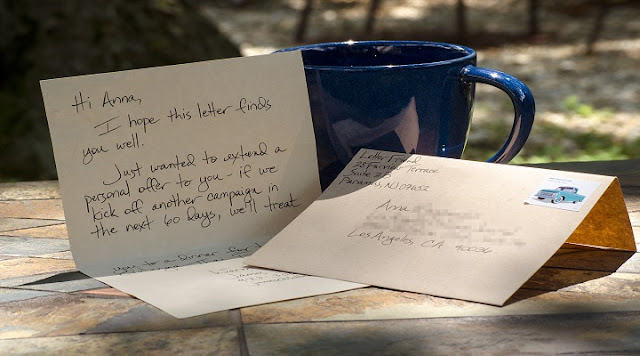 Hi Anna,
I hope this letter finds
you well.
Just wanted to extend a
personal offer to you - if we
kick off another campaign in
the next 60 days, we'll treat
you to a dinner for
Letter Friend
25 Fairview Terrace
Suite 2B
Paramus, NJ 07652
Anna
Los Angeles, CA 90036